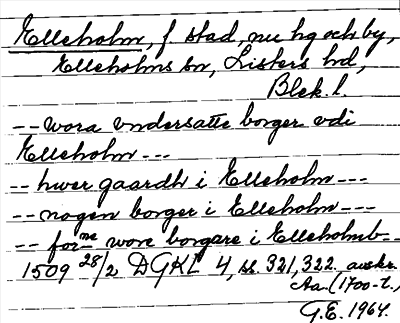 Elleholm, f. stad, nu hg och by,
Elleholms sn, Listers hd,
Blek. l.
-- wora vndersatte borger vdi
Elleholm ---
-- hwer gaardh i Elleholm ---
-- nogen borger i Elleholm ---
-- forne wore borgare i Elleholmb--
1509 28/2 DGKL 4, s. 321, 322. avskr.
Aa. (1700-t.)
G.E. 1964.